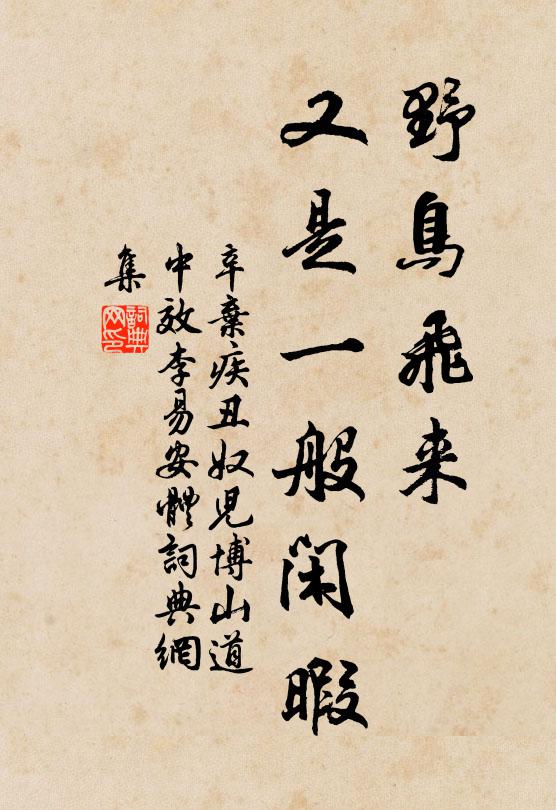 野鳥飛来
又是一般閑暇
辛棄疾丑奴児博山道
中效李易安體詞典網
集
詞典
网印